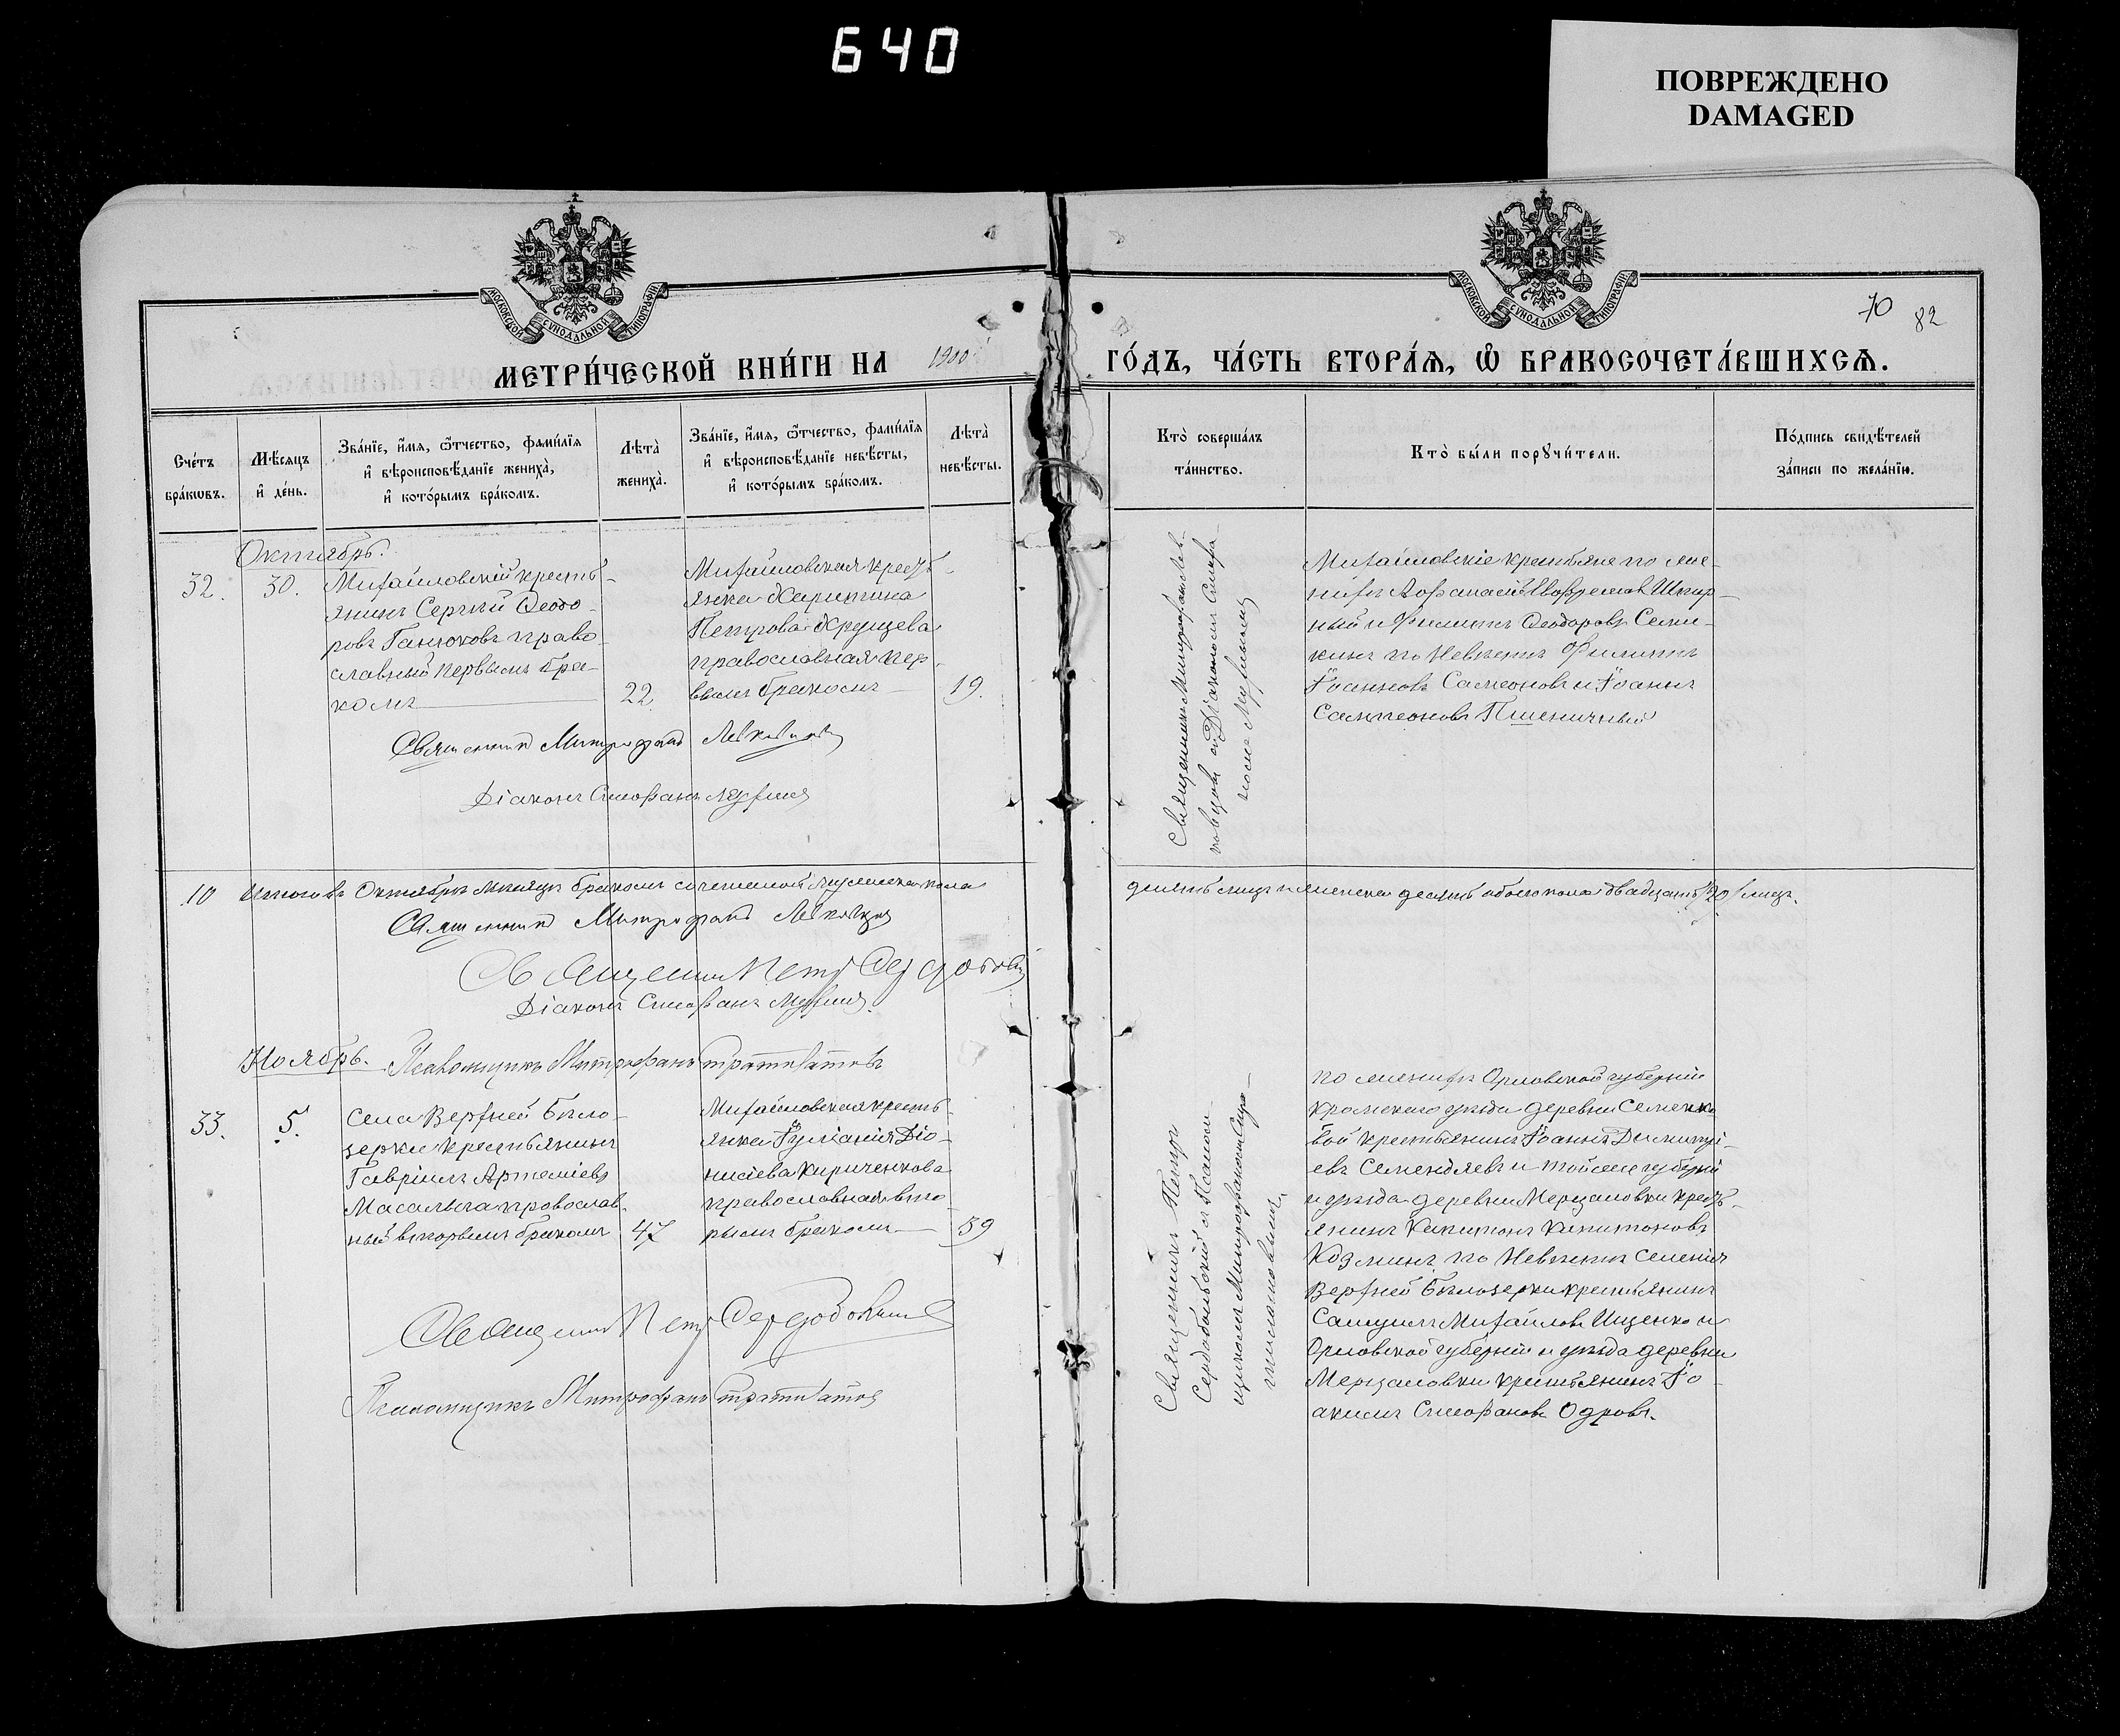 640
ПОВРЕЖДЕНО
DAMAGED
МОСКОВСКОЙ СѴНОДАЛЬНОЙ ТИПОГРАФІИ
МОСКОВСКОЙ СѴНОДАЛЬНОЙ ТИПОГРАФІИ
70 82
МЕТРИ́ЧЕСКОЙ КНИ́ГИ НА 1900 ГО́ДЪ, ЧА́СТЬ ВТОРА́Ѧ, Ѡ҆ БРАКОСОЧЕТА́ВШИХСѦ.
Сче́тъ
бра́кѡвъ.
Мѣ́сяцъ
и҆ де́нь.
Зва́нїе, и҆́мѧ, ѻ҆́тчество, фамѝлїѧ
и҆ вѣроисповѣ́данїе жениха̀,
и҆ кото́рымъ бра́комъ.
Лѣта̀
жениха̀.
Зва́нїе, и҆́мѧ, ѻ҆́тчество, фамѝлїѧ
и҆ вѣроисповѣ́данїе невѣ́сты,
и҆ кото́рымъ бра́комъ.
Лѣта̀
невѣ́сты.
Кто̀ соверша́лъ
та́инство.
Кто̀ бы́ли порꙋчи́тели.
По́дпись свидѣ́телей
за́писи по жела́нїю.
Октябрь.
32. 30.
Михайловскій кресть-
янинъ Сергій Ѳеодо-
ровъ Ганюковъ право-
славный первымъ бра-
комъ
22.
Михайловская кресть-
янка Харитина
Петрова Хрущева
православная пер-
вымъ бракомъ
19.
Священникъ Митрофанъ Лев-
ковцовъ съ Діакономъ Стефа-
номъ
Михайловскіе крестьяне по же-
нихѣ
ный и Филиппъ Ѳеодоровъ Семи-
кинъ по Невѣстѣ Филиппъ
Іоанновъ Самсоновъ и Іоаннъ
Сампсоновъ Пшеничный
Священникъ Митрофанъ Левковцовъ
Діаконъ Стефанъ
10 Итого въ Октябрѣ мѣсяцѣ бракомъ сочетаной мужеска пола
десять лицъ и женска десять обоего пола двадцать /20/ лицъ.
Священникъ Митрофанъ Левковцовъ
Священникъ Петръ
Діаконъ Стефанъ
Ноябрь.
Псаломщикъ Митрофанъ
33. 5.
Села Верхней Бѣло-
зерки крестьянинъ
Гавріилъ Артеміевъ
Масалыга православ-
ный вторымъ бракомъ
47
Михайловская кресть-
янка Іуліанія Діо-
нисіева Кириченкова
православная вто-
рымъ бракомъ
39
Священникъ Петръ
Сердобольскій съ Псалом-
щикомъ Митрофаномъ
по женихѣ Орловской губерніи
Кромскаго уѣзда деревни Семенко-
вой крестьянинъ Іоаннъ Димитрі-
евъ Семендяевъ и той же губерніи
и уѣзда деревни Мерцаловки кресть-
янинъ Капитонъ Капитоновъ
Козминъ по Невѣстѣ селенія
Верхней Бѣлозерки крестьянинъ
Самуилъ Михайловъ Ищенко и
Орловской губерніи и уѣзда деревни
Мерцаловки крестьянинъ Іо-
акимъ Стефановъ Одровъ.
Священникъ Петръ
Псаломщикъ Митрофанъ